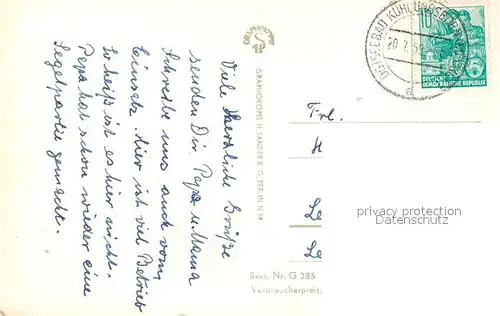 Viele Herzliche Grüße
senden Dir Papa u. Mama
Schreibe uns auch vom
Einsatz. Hier ist viel Betrieb
so heiß ist es hier nicht.
Papa hat schon wieder eine
Segelpartie gemacht.
GRAPHOKOPIE H. SANDER K.G. BERLIN N 58
Best. Nr. G 285
Verbraucherpreis:
OSTSEEBAD KÜHLUNGSBORN
20.7.
10
DEUTSCHE
DEMOKRATISCHE REPUBLIK
Frl.
H
Le
Le
privacy protection
Datenschutz